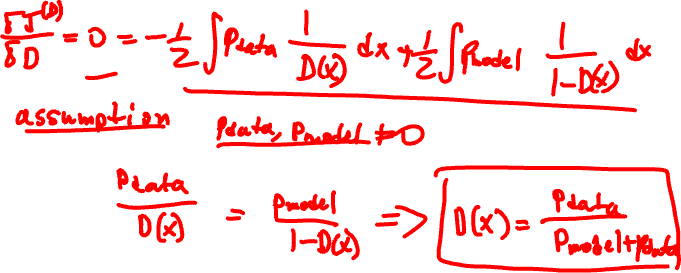 δJ^(D)/δD = 0 = -1/2 ∫ Pdata 1/D(x) dx + 1/2 ∫ Pmodel 1/(1-D(x)) dx
assumption Pdata, Pmodel ≠ 0
Pdata/D(x) = Pmodel/(1-D(x)) => D(x) = Pdata/(Pmodel+Pdata)